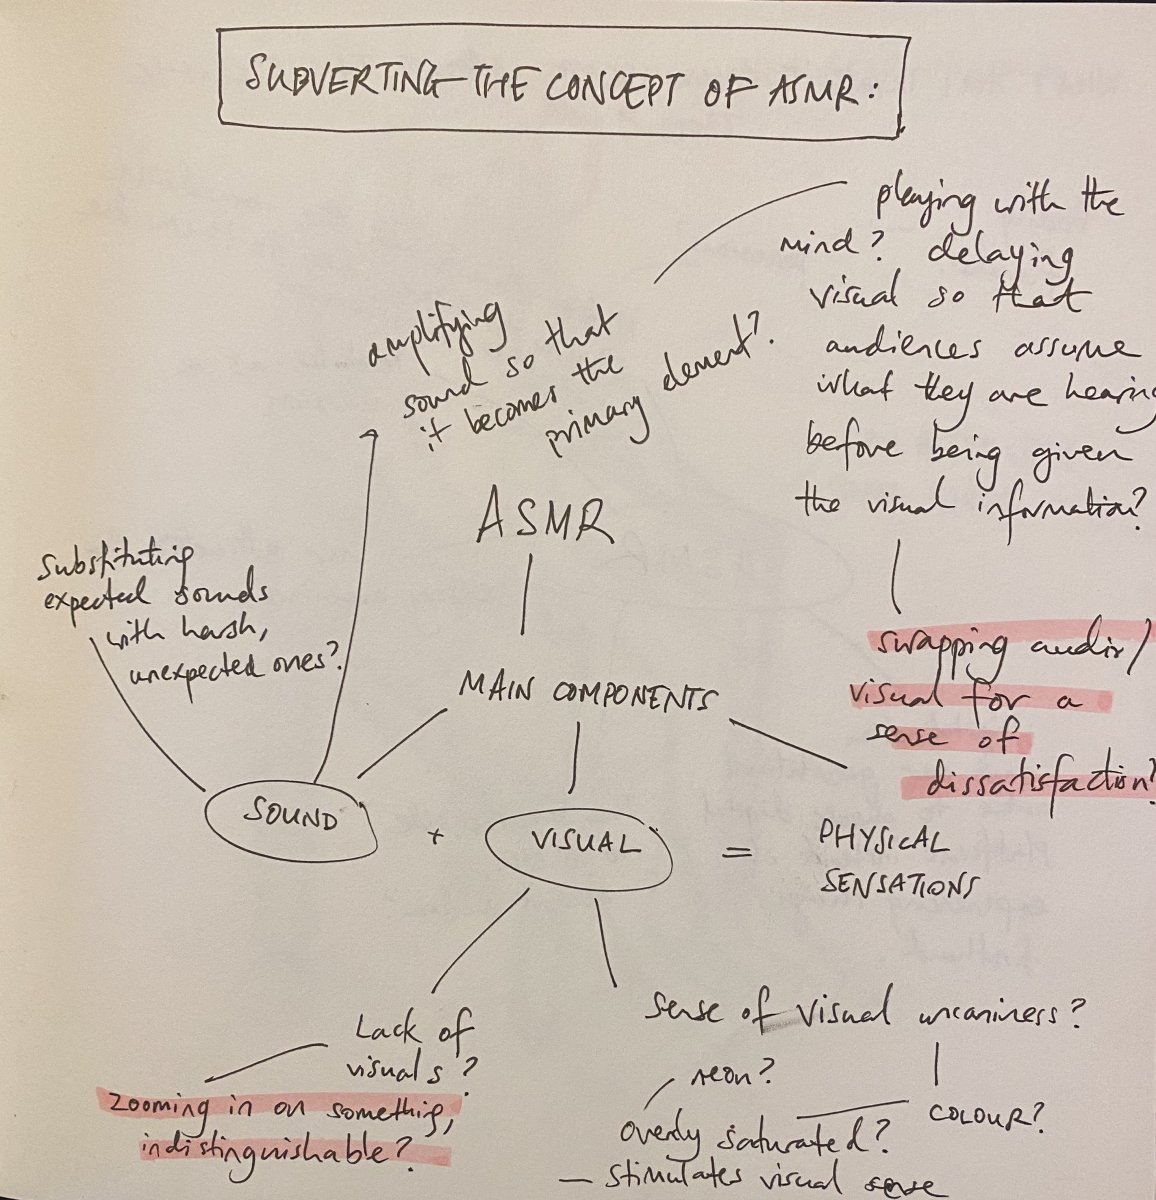 SUBVERTING THE CONCEPT OF ASMR:
playing with the
mind? delaying
visual so that
audiences assume
what they are hearing
before being given
the visual information?
swapping audio/
visual for a
sense of
dissatisfaction?
amplifying
sound so that
it becomes the
primary element?
ASMR
substituting
expected sounds
with harsh,
unexpected ones?
MAIN COMPONENTS
SOUND + VISUAL = PHYSICAL
SENSATIONS
Lack of
visuals?
zooming in on something,
indistinguishable?
sense of visual uncaniness?
COLOUR?
neon?
overly saturated?
— stimulates visual sense